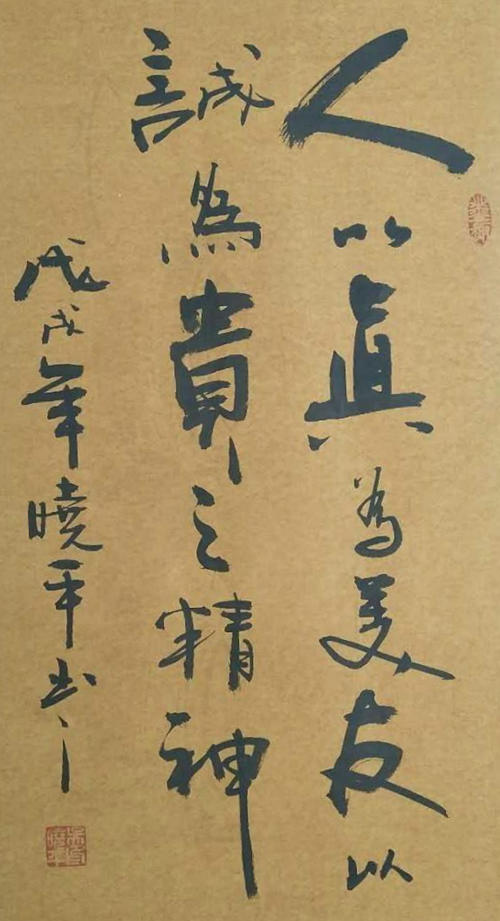 人以眞為美友以
誠為貴之精神
戊戌年曉平书